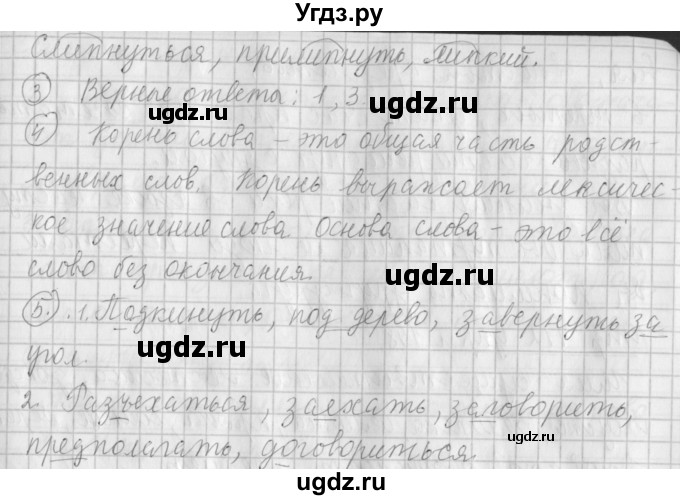 Угдз.ру
Слипнуться, прилипнуть, липкий.
③ Верные ответы: 1, 3
④ Корень слова – это общая часть родст-
венных слов. Корень выражает лексичес-
кое значение слова. Основа слова – это всё
слово без окончания.
⑤. 1. Подкинуть, под дерево, завернуть за
угол.
2. Разъехаться, заехать, заговорить,
предполагать, договориться.
ugdz.ru
ugdz.ru
ugdz.ru
ugdz.ru
ugdz.ru
ugdz.ru
ugdz.ru
ugdz.ru
ugdz.ru
ugdz.ru